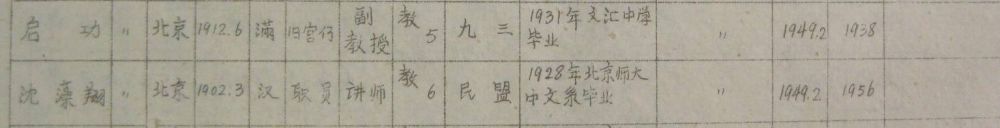 启功 〃 北京 1912.6 满 旧官僚 副教授 教5 九三 1931年文汇中学毕业 〃 1949.2 1938
沈藻翔 〃 北京 1902.3 汉 职员 讲师 教6 民盟 1928年北京师大中文系毕业 〃 1949.2 1956